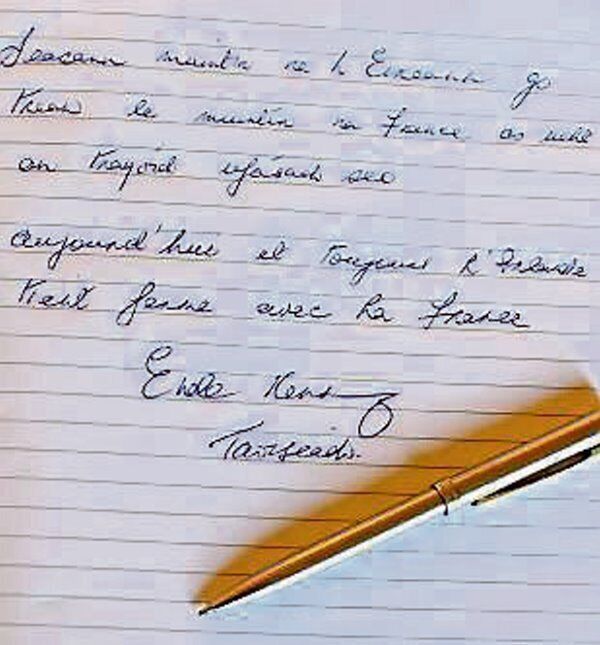 Seasann muintir na h Eireann go
trean le muintir na France as ucht
an tragóid uafásach seo
aujourd'hui et toujours l'Irlande
tient ferme avec La France
Enda Kenny
Taoiseach.